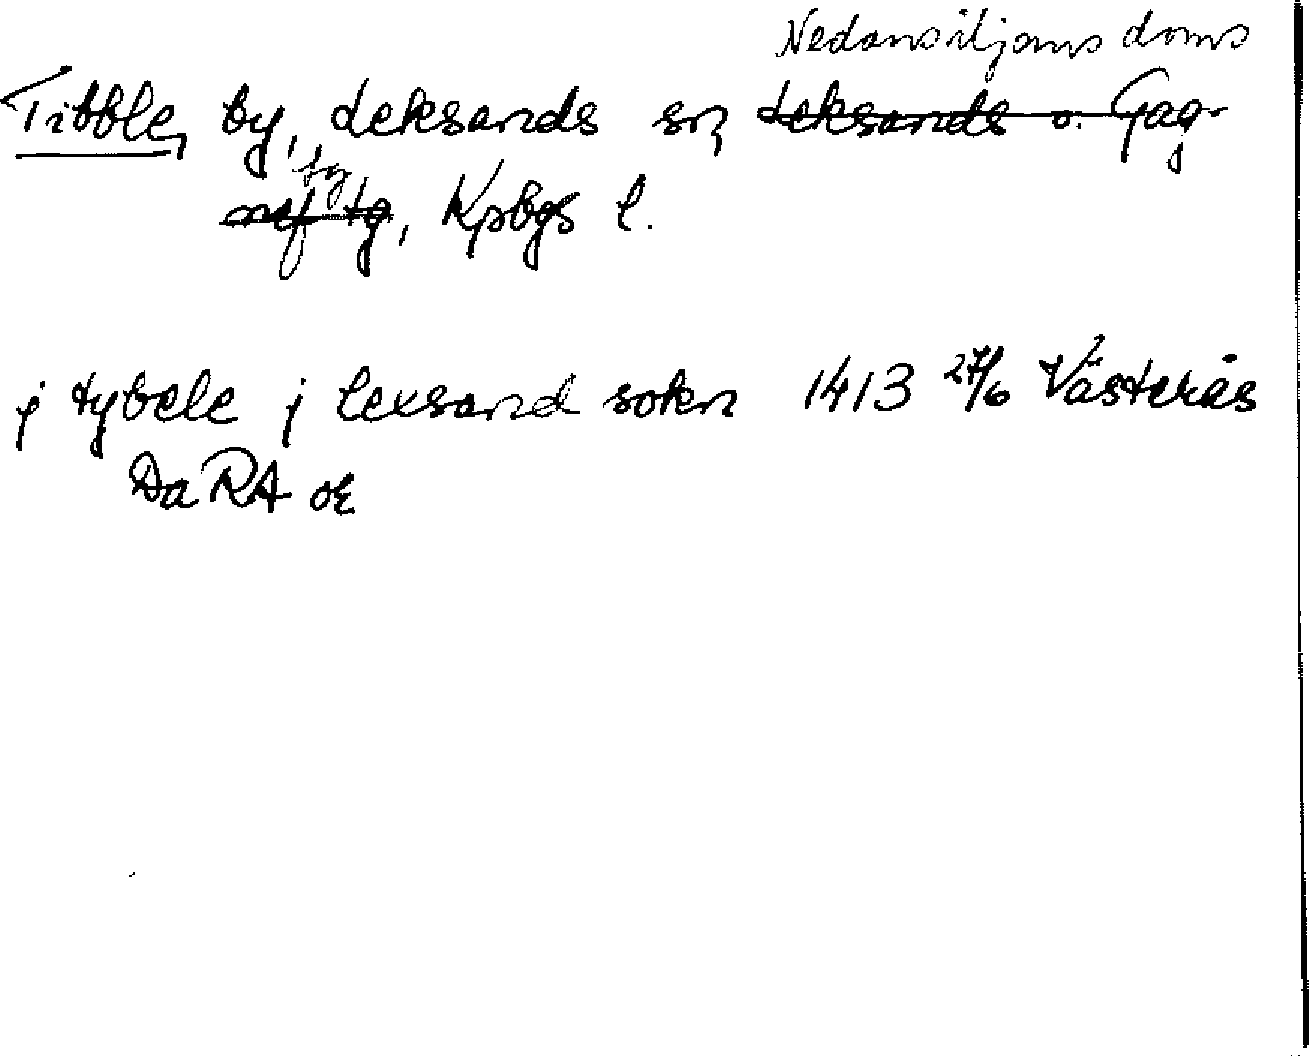 Nedansiljans doms
Tibble, by, Leksands sn, Leksands o. Gag-
tg
nef tg, Kpbgs l.
j tybele j lexsand sokn 1413 27/6 Västerås
Da RA or